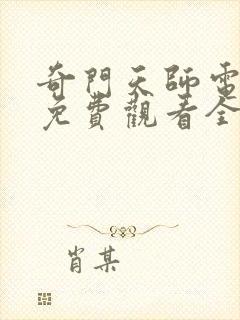 奇門天師電
免費觀看全
肖某